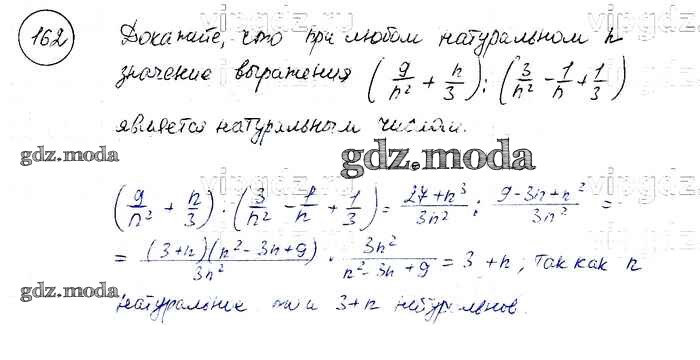 162
Докажите, что при любом натуральном n
значение выражения (9/n² + n/3) : (3/n² - 1/n + 1/3)
является натуральным числом.
gdz.moda gdz.moda
(9/n² + n/3) : (3/n² - 1/n + 1/3) = 27+n³/3n² : 9-3n+n²/3n² =
= (3+n)(n²-3n+9)/3n² · 3n²/n²-3n+9 = 3+n, так как n
gdz.moda gdz.moda
натуральное 3+n